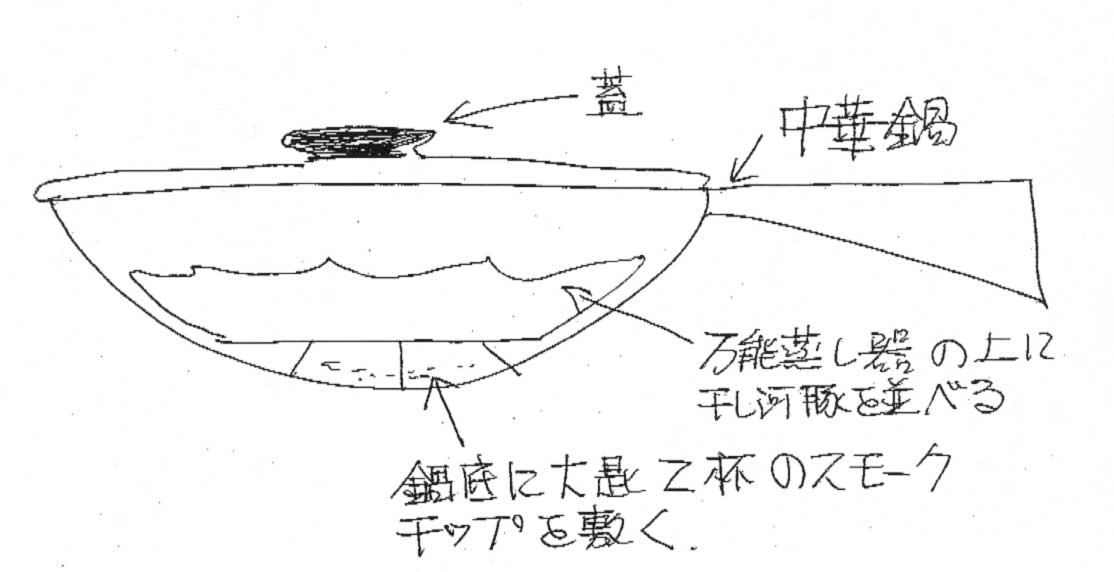 蓋
中華鍋
万能蒸し器の上に
干し河豚を並べる
鍋底に大匙2杯のスモーク
チップを敷く.